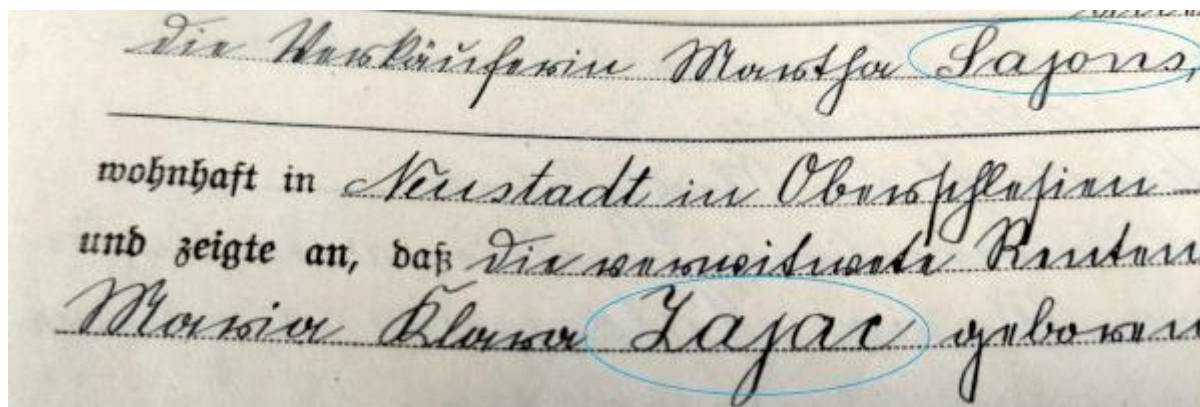 die Verkäuferin Martha Sajons,
wohnhaft in Neustadt in Oberschlesien
und zeigte an, daß die verwitwete Renten
Maria Klara Zajac geboren